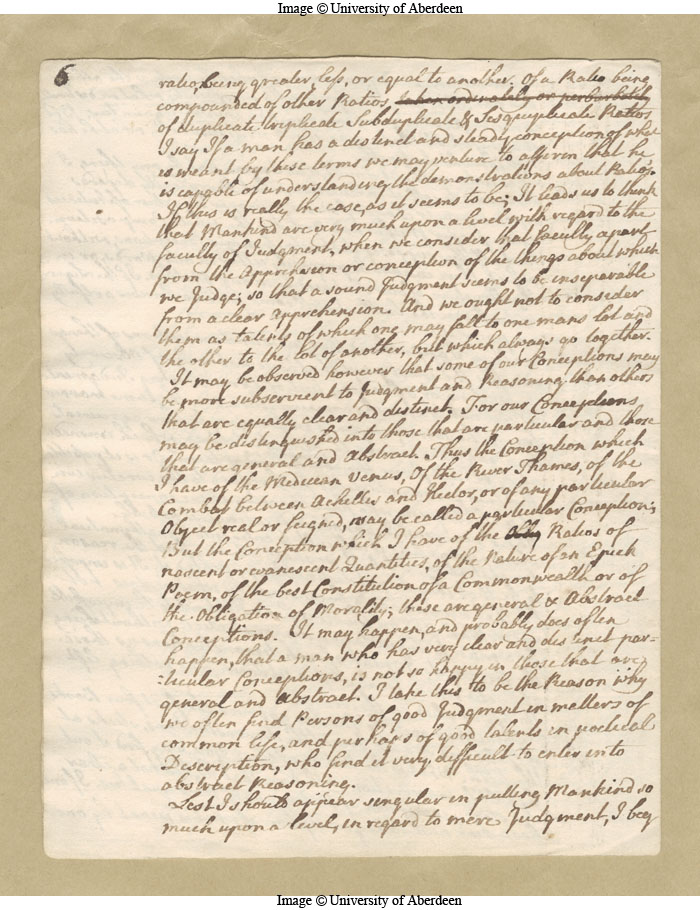 Image © University of Aberdeen
6
ratio, being greater, less, or equal to another. Of a Ratio being
compounded of other Ratios when ordinately or perturbately
of duplicate triplicate Subduplicate & Sesquiplicate Ratios
I say If a man has a distinct and steady conception of what
is meant by these terms we may venture to affirm that he
is capable of understanding the demonstrations about Ratios.
If this is really the case, as it seems to be; It leads us to think
that Mankind are very much upon a level with regard to the
faculty of Judgment, when we consider that faculty apart
from the Apprehension or conception of the things about which
we Judge; so that a sound Judgment seems to be inseparable
from a clear Apprehension. And we ought not to consider
them as talents of which one may fall to one mans lot and
the other to the lot of another, but which always go together.
It may be observed however that some of our Conceptions may
be more subservient to Judgment and Reasoning than others
that are equally clear and distinct. For our Conceptions
may be distinguished into those that are particular and those
that are general and Abstract. Thus the Conception which
I have of the Medicean Venus, Of the River Thames, of the
Combat between Achilles and Hector, or of any particular
Object real or feigned, may be called a particular Conception;
But the Conception which I have of the Ratios of
nascent or evanescent Quantities, of the Nature of an Epick
Poem, of the best Constitution of a Commonwealth or of
the Obligation of Morality; these are general & Abstract
Conceptions. It may happen, and probably does often
happen, that a man who has very clear and distinct par=
=ticular Conceptions, is not so happy in those that are
general and abstract. I take this to be the Reason why
we often find Persons of good Judgment in matters of
common life, and perhaps of good talents in poetical
Description, who find it very difficult to enter into
abstract Reasoning.
Lest I should appear singular in putting Mankind so
much upon a level, in regard to mere Judgment, I beg
Image © University of Aberdeen